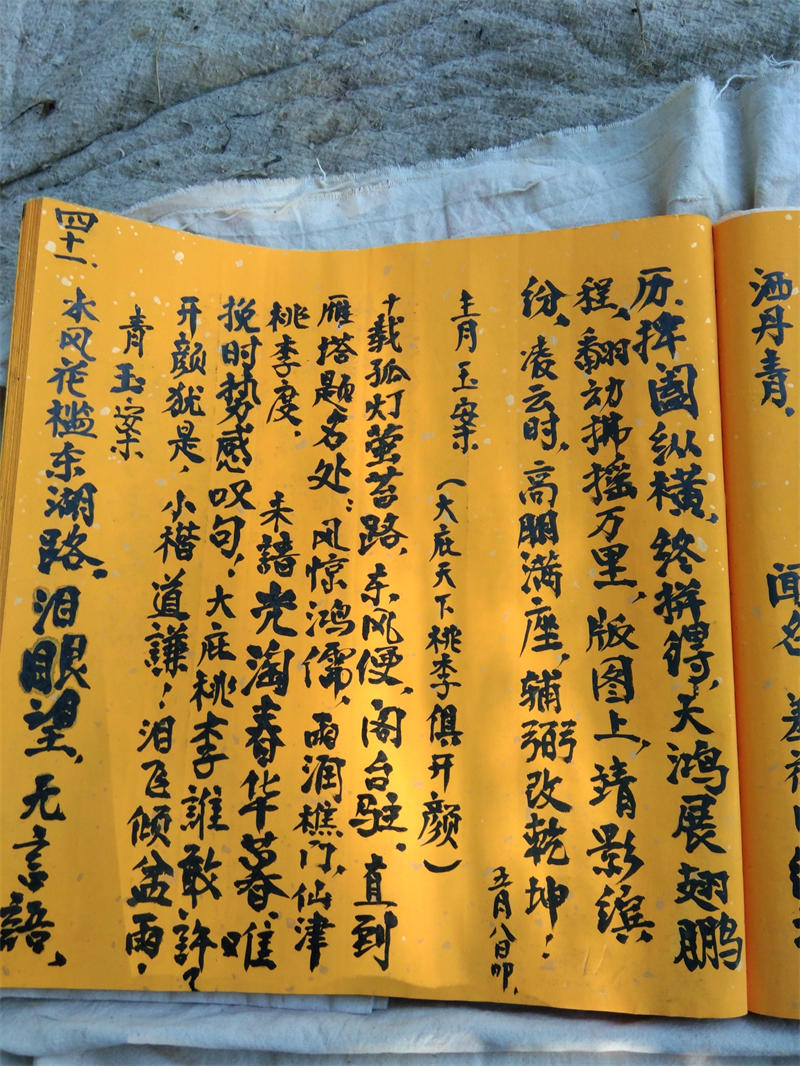 洒丹青,
闻名
历,捭阖纵横,终拼得,天鸿展翅鹏
程,翻动拂摇万里,版图上,靖影缤
纷,凌云时,高朋满座,辅弼改乾坤!
五月八日叩,
青玉案 (大庇天下桃李俱开颜)
十载孤灯萤苔路,东风便,阁台驻,直到
雁塔题名处:风惊鸿儒,雨润樵门,仙津
桃李度,
未谙光淘春华暮,唯
挽时势感叹句,大庇桃李谁敢許?
开颜犹是,小楷道謙!泪飞倾盆雨,
青玉案
四十一、水风花槛东湖路,泪眼望,无言語,